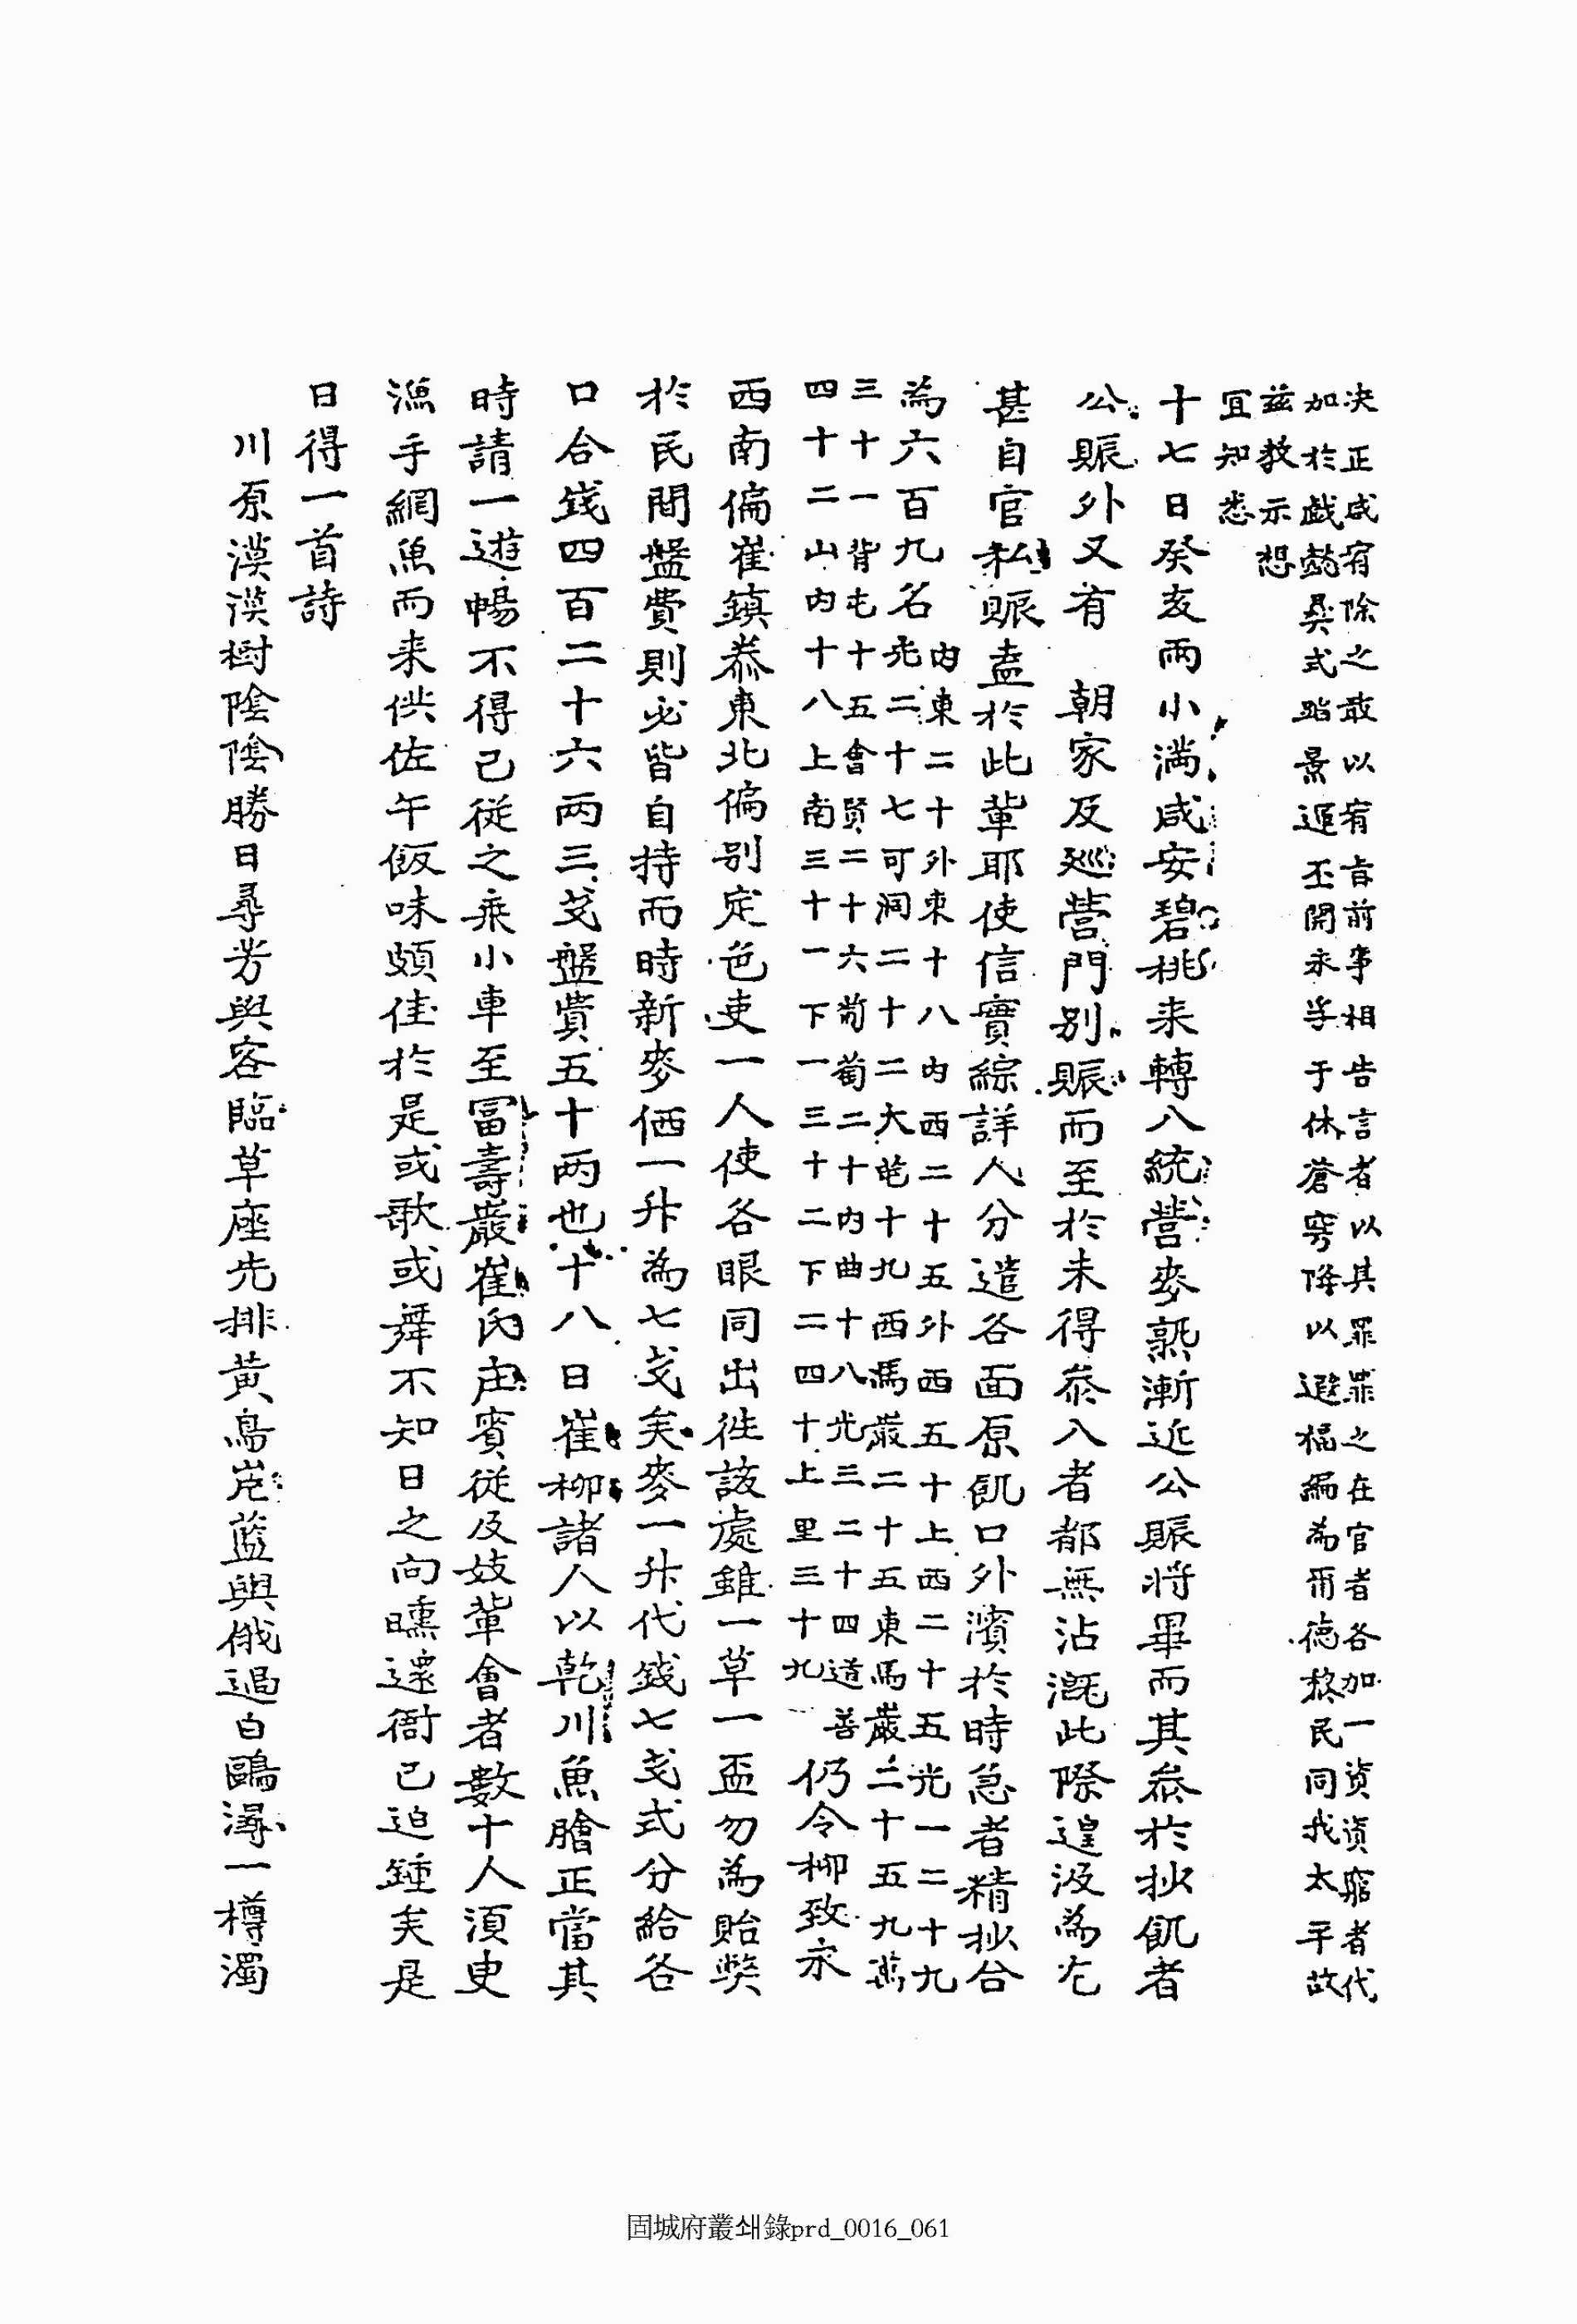 决正咸宥除之敢以宥旨前事相告言者以其罪罪之在官者各加一資資窮者代
加於戲懿典式點景運丕開永孚于休蒼穹降以遐福編爲爾德黎民同我太平故
玆敎示想
宜知悉
十七日癸亥雨小滿咸安碧桃来轉八統營麥熟漸近公賑将畢而其叅於抄飢者
公賑外又有　朝家及廵營門别賑而至於未得叅入者都無沾漑此際遑汲爲尤
甚自官私賑盍於此輩耶使信實綜詳人分遣各面原飢口外濱於時急者精抄合
爲六百九名
内東二十外東十八内西二十五外西五十上西二十五光一二十九
光二十七可洞二十二大芚十九西馬巖二十五東馬巖二十五九萬
三十一背屯十五會賢二十六葡萄二十内曲十八光三二十四道善
四十二山内十八上南三十一下一三十二下二四十上里三十九
仍令柳致永
西南偏崔鎮恭東北偏别定色吏一人使各眼同出徃該處雖一草一盃勿爲貽獘
於民間盤費則必皆自持而時新麥価一升爲七戔矣麥一升代錢七戔式分給各
口合錢四百二十六两三戔盤費五十两也十八日崔柳諸人以乾川魚膾正當其
時請一遊暢不得已從之乘小車至冨壽巖崔丙庄賓從及妓輩會者數十人湏臾
漁手網魚而来供佐午飯味頗佳於是或歌或舞不知日之向曛還衙已迫鍾矣是
日得一首詩
川原漠漠樹陰陰勝日尋芳與客臨草座先排黄鳥㟁藍輿俄過白鷗潯一樽濁